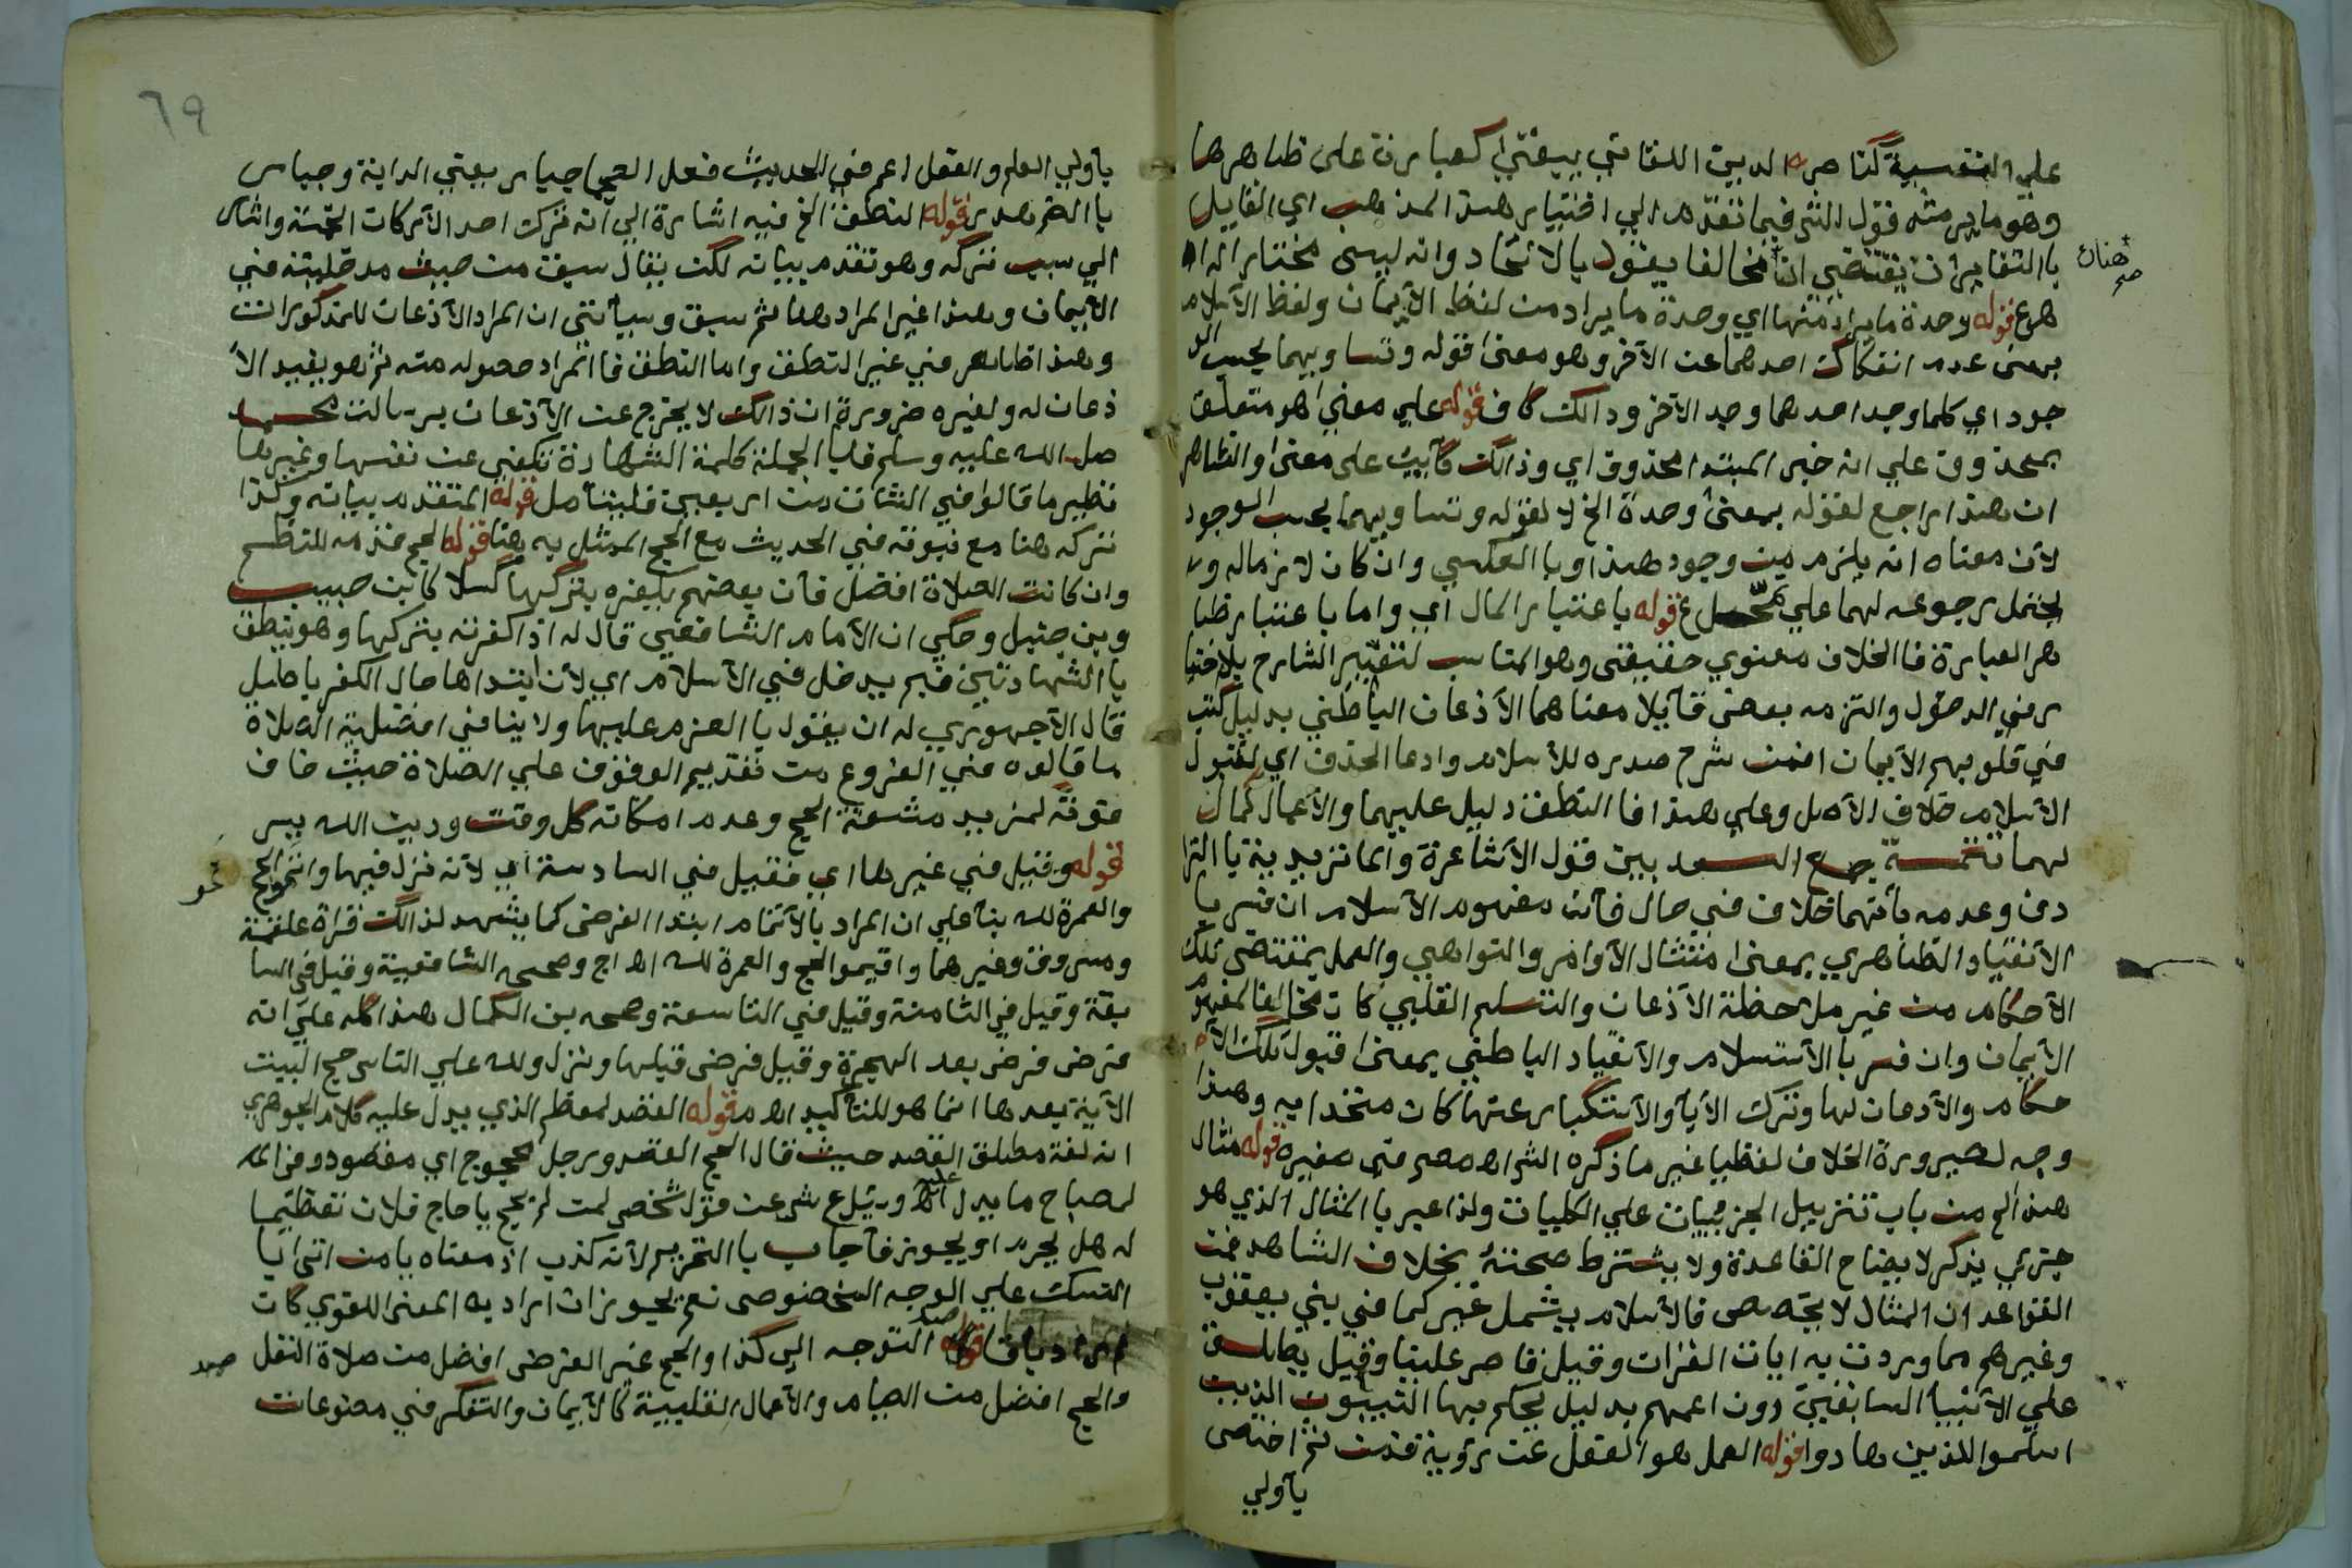 علي النفسية كناصر الدين اللقاني بيبقي كعبارة على ظاهرها
وهو ما يرمثه قول الش فيما تقدم الي اختيار هذا المذهب اي القايل
با التغاير ان يقتضي ان مخالفا يقول بالاتحاد وانه ليس مختارا له اه
هنان صح
هرع قوله وحدة ما يراد منها اي وحدة ما يراد من لفظ الايمان ولفظ الاسلام
بمعنى عدم انفكاك احدهما عن الاخر وهو معنى قوله وتساويهما بحسب الو
جود اي كلما وجد احدهما وجد الاخر وذالك كاف قوله علي معنى هو متعلق
بمحذوف علي انه خبر المبتدا المحذوف اي وذالك كاين على معنى والظاهر
ان هذا راجع لقوله بمعنى وحدة الخ لا لقوله وتساويهما بحسب الوجود
لان معناه انه يلزم من وجود هذا وبا العكس وان كان لازما له ولا
يحتمل رجوعه لهما علي تمحل ع قوله با عتبار المال اي واما با عتبار ظا
هر العبارة فا الخلاف معنوي حقيقي وهو المناسب لتعبير الشارح بالاختيا
ر في الدخول والتزمه بعض قايلا معناهما الاذعان الباطني بدليل كتب
في قلوبهم الايمان افمن شرح صدره للاسلام وادعا الحذف اي لقبول
الاسلام خلاف الاصل وعلي هذا فا النطق دليل عليهما والاعمال كمال
لهما تتمة جمع السعد بين قول الاشاعرة والماتريدية با الترا
دف وعدمه بانهما خلاف في حال فان مفهوم الاسلام ان فسر با
الانقياد الظاهري بمعنى امتثال الاوامر والنواهي والعمل بمقتضى تلك
الاحكام من غير ملاحظة الاذعان والتسليم القلبي كان مخالفا لمفهوم
الايمان وان فسر با الاستسلام والانقياد الباطني بمعنى قبول تلك الا
حكام والاذعان لها وترك الابا والاستكبار عنها كان متحدا به وهذا
وجه لصيرورة الخلاف لفظيا غير ما ذكره الش اه مصم في صغيره قوله مثال
هذا الخ من باب تنزيل الجزييات علي الكليات ولذا عبر با المثال الذي هو
جزئي يذكر لايضاح القاعدة ولا يشترط صحته بخلاف الشاهد فمن
القواعد ان المثال لا يخصص فالاسلام يشمل غير كما في بني يعقوب
وغيرهم مما وردت به ايات القران وقيل قاصر علينا وقيل يطلق
علي الانبيا السابقين دون اممهم بدليل يحكم بها النبيون الذين
اسلموا للذين هادوا قوله العمل هو الفعل عن روية فمن ثم اختص
ياولي
٦٩
ياولي العلم والفعل اعم في الحديث فعل العجما جبار يعني الداية وجبار
با الضم هدر قوله النطق الخ فيه اشارة الي انه ترك احد الاركان الخمسة واشار
الي سبب تركه وهو تقدم بيانه لكن يقال سبق من حيث مدخليته في
الايمان وهذا غير المراد هنا ثم سبق وسياتي ان المراد الاذعان للمذكورات
وهذا ظاهر في غير النطق واما النطق فا المراد حصوله منه ثم هو يفيد الا
ذعان له ولغيره ضرورة ان ذالك لا يخرج عن الاذعان برسالة محمد
صل الله عليه وسلم فا الجملة كلمة الشهادة تكفي عن نفسها وغيرها
نظير ما قالوا في الشاة من اربعين فليتامل قوله المتقدم بيانه وكذا
تركه هنا مع ثبوته في الحديث مع الحج الممثل به هنا قوله الحج قدمه للنظم
وان كانت الصلاة افضل فان بعضهم يكفره بتركها كسلا كابن حبيب
وبن حنبل وحكي ان الامام الشافعي قال له اذا كفرته بتركها وهو ينطق
با الشهادتين فبم يدخل في الاسلام اي لان ابتداها حال الكفر باطل
فقال الاجهوري له ان يقول با العزم عليها ولا ينافي افضلية الصلاة
ما قالوه في الفروع من تقديم الوقوف علي الصلاة حيث خاف
فوته لمزيد مشقة الحج وعدم امكانه كل وقت ودين الله يسر
قوله وقيل في غيرها اي فقيل في السادسة اي لانه نزل فيها واتموا الحج
والعمرة لله بنا علي ان المراد بالاتمام ابتدا الفرض كما يشهد لذالك قراة علقمة
ومسروق وغيرهما واقيموا الحج والعمرة لله اه اج وصححه الشافعية وقيل في السا
بعة وقيل في الثامنة وقيل في التاسعة وصححه بن الكمال هذا كله علي انه
فرض فرض بعد الهجرة وقيل فرض قبلها ونزل ولله علي الناس حج البيت
الاية بعدها انما هو للتاكيد اه م قوله القصد لمعظم الذي يدل عليه كلام الجوهري
انه لغة مطلق القصد حيث قال الحج القصد ورجل محجوج اي مقصود وفي ا
لمصباح ما يدل عليه اه وسئل ع ش عن قول شخص لمن لم يحج يا حاج فلان تعظيما
له هل يحرم او يجوز فاجاب با التحريم لانه كذب اذ معناه يا من اتى با
النسك علي الوجه المخصوص نعم يجوز ان اراد به المعنى اللغوي كان
التوجه الي كذا والحج غير الفرض افضل من صلاة النفل
والحج افضل من الصيام والاعمال القلبية كالايمان والتفكر في مصنوعات